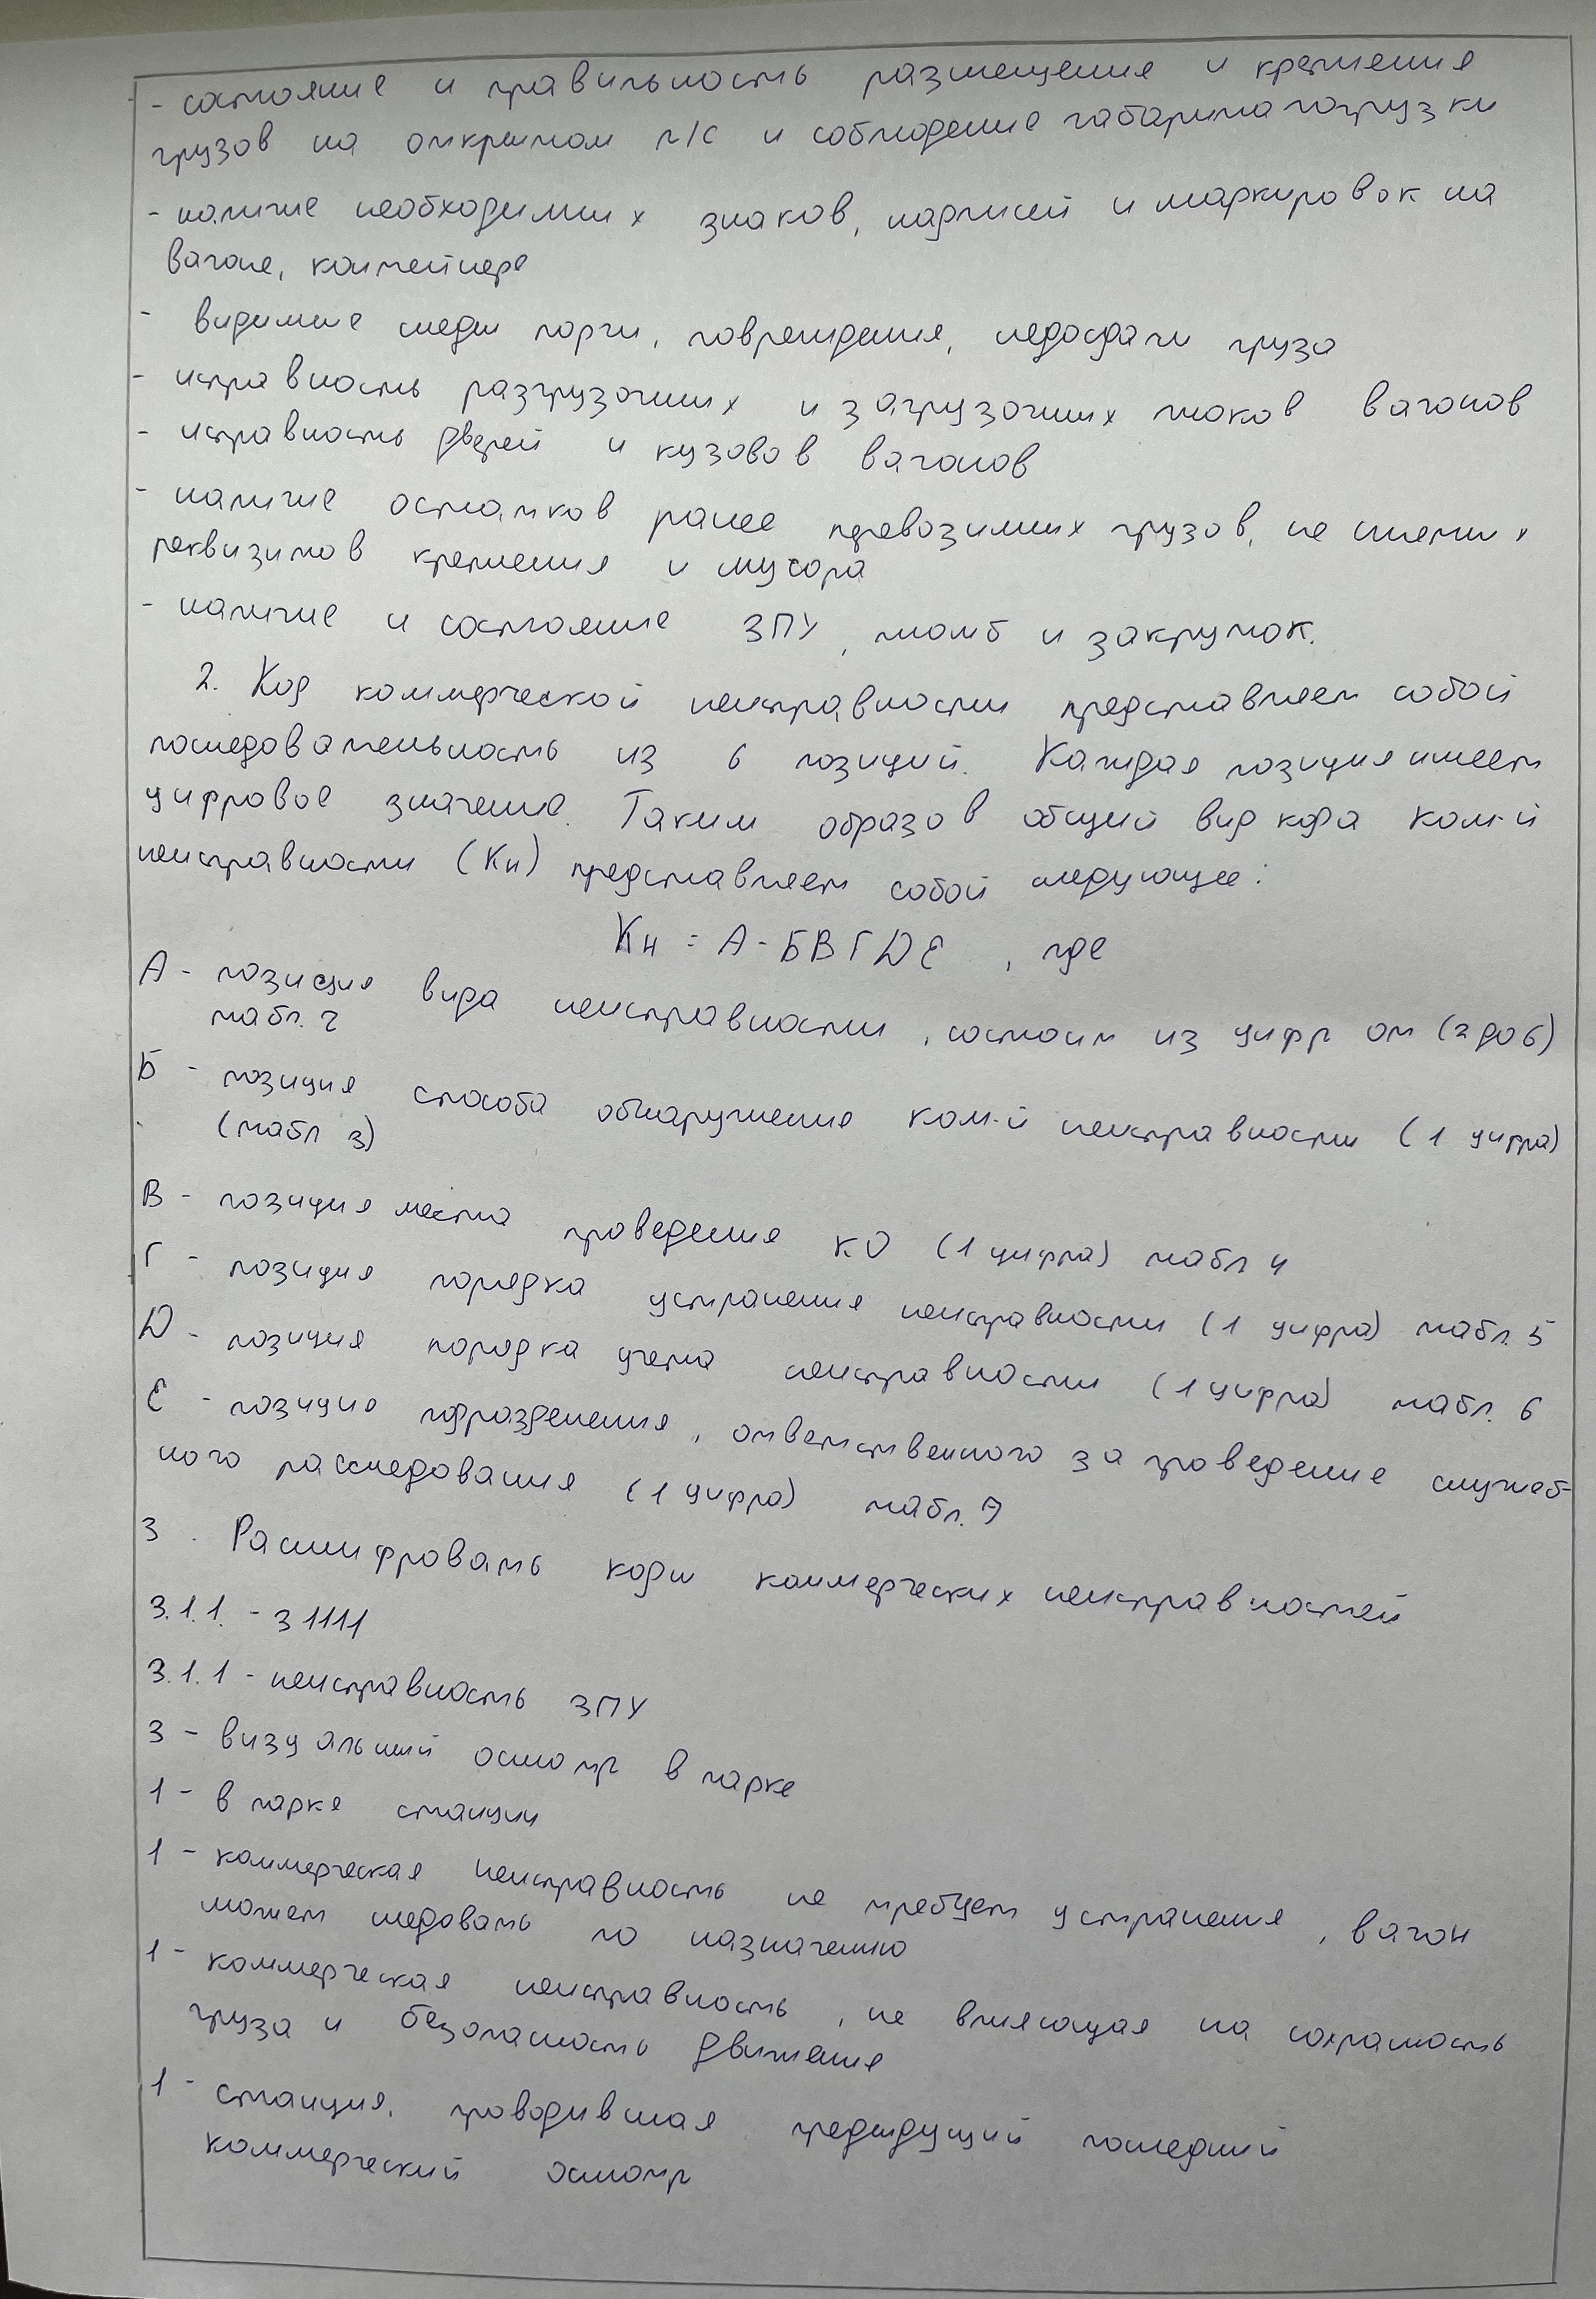 - состояние и правильность размещения и крепления
грузов на открытом п/с и соблюдение габарита погрузки
- наличие необходимых знаков, надписей и маркировок на
вагоне, контейнере
- видимые следы порчи, повреждения, недосдачи груза
- исправность разгрузочных и загрузочных люков вагонов
- исправность дверей и кузовов вагонов
- наличие остатков ранее перевозимых грузов, не снятых
реквизитов крепления и мусора
- наличие и состояние ЗПУ, пломб и закруток.
2. Код коммерческой неисправности представляет собой
последовательность из 6 позиций. Каждая позиция имеет
цифровое значение. Таким образов общий вид кода ком-й
неисправности (Кн) представляет собой следующее:
Кн = А - БВГДЕ , где
А - позиция вида неисправности, состоит из цифр от (2 до 6)
табл. 2
Б - позиция способа обнаружения ком-й неисправности (1 цифра)
(табл 3)
В - позиция места проведения КО (1 цифра) табл 4
Г - позиция порядка устранения неисправности (1 цифра) табл. 5
Д - позиция порядка учета неисправности (1 цифра) табл. 6
Е - позиция подразделения, ответственного за проведение служеб-
ного расследования (1 цифра) табл. 7
3. Расшифровать коды коммерческих неисправностей
3.1.1. - 31111
3.1.1 - неисправность ЗПУ
3 - визуальный осмотр в парке
1 - в парке станции
1 - коммерческая неисправность не требует устранения, вагон
может следовать по назначению
1 - коммерческая неисправность, не влияющая на сохранность
груза и безопасность движения
1 - станция, проводившая предыдущий последний
коммерческий осмотр